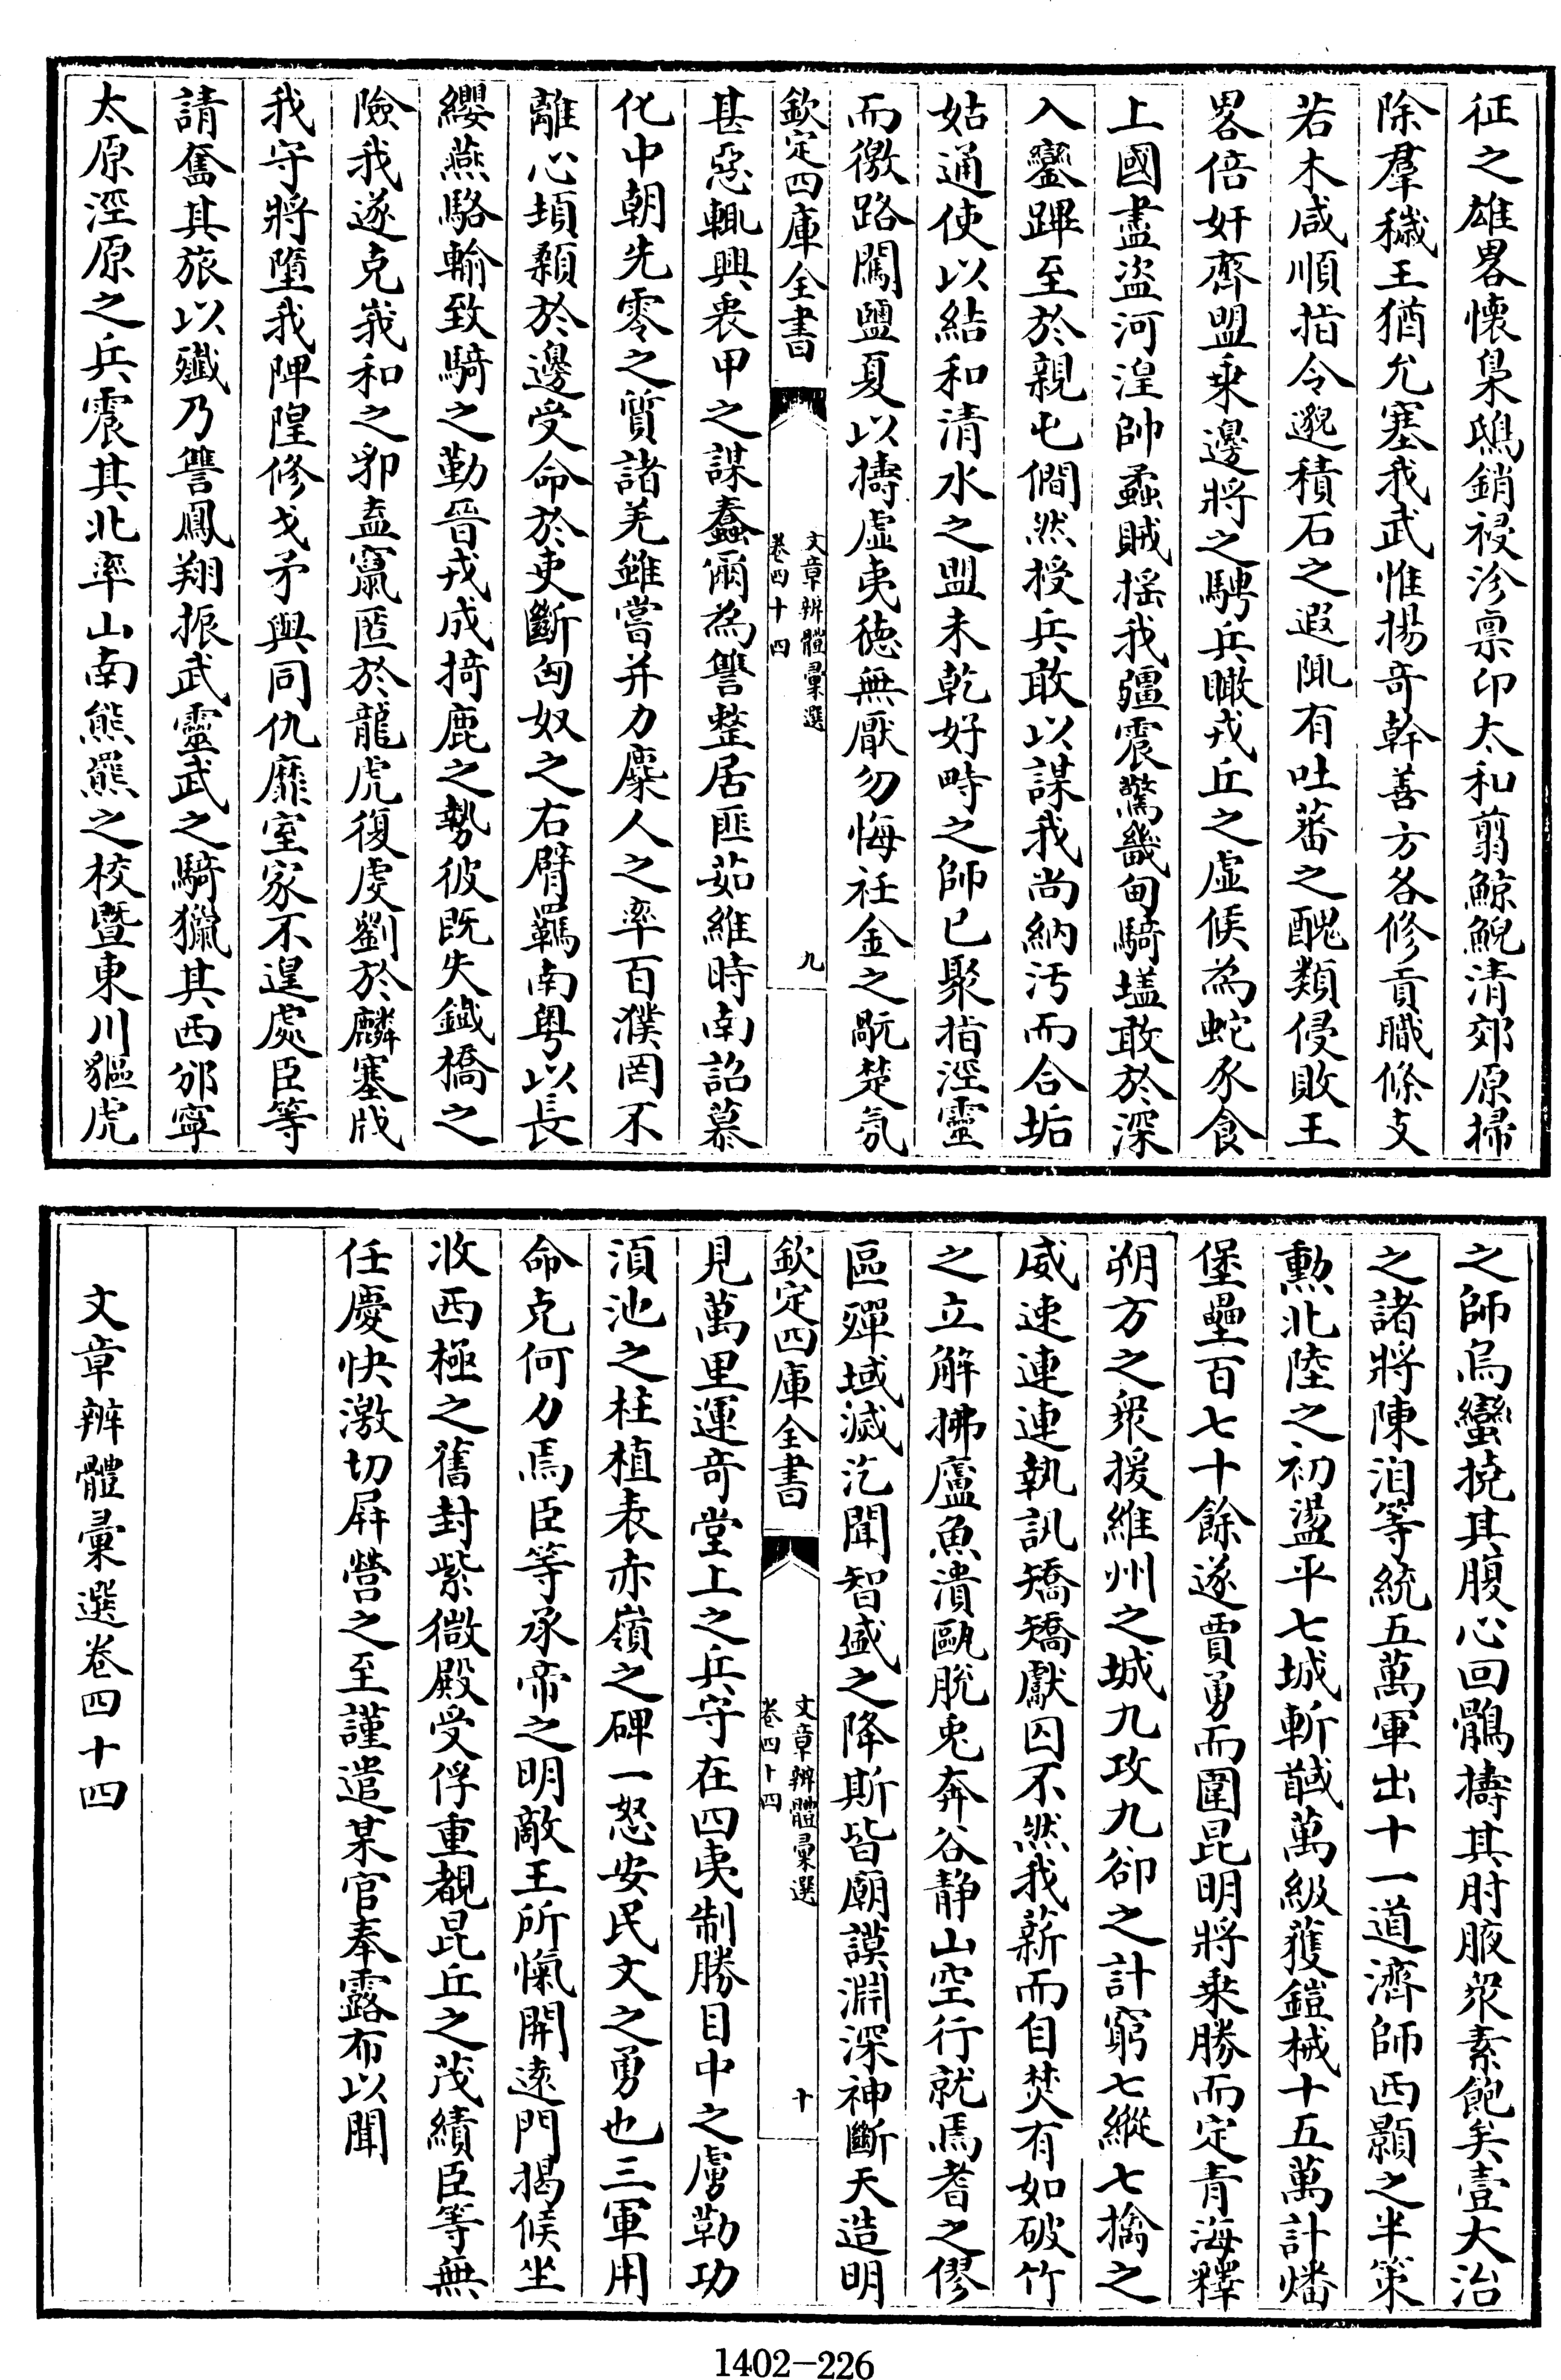 征之雄畧懷梟鴟銷祲沴禀卬太和翦鯨鯢清郊原掃
除羣穢王猶允塞我武惟揚奇幹善方各修貢職條支
若木咸順指令邈積石之遐陬有吐蕃之醜類侵敗王
畧倍奸齊盟乗邊將之騁兵瞰戎丘之虚候為蛇豕食
上國盡盜河湟帥蟊賊摇我疆震驚畿甸騎壒敢於深
入鑾蹕至於親屯僩然授兵敢以謀我尚納汚而合垢
姑通使以結和清水之盟未乾好畤之師已聚指涇靈
而徼路闖鹽夏以擣虚夷徳無厭勿悔衽金之翫楚氛
欽定四庫全書
文章辨體彙選
卷四十四
九
甚惡輒興衷甲之謀蠢爾為讐整居匪茹維時南詔慕
化中朝先零之質諸羌雖嘗并力麇人之率百濮罔不
離心頃顙於邊受命於吏斷匈奴之右臂羈南粤以長
纓燕駱輸致騎之勤晉戎成掎鹿之勢彼既失鐵橋之
險我遂克峩和之郛盍竄匿於龍虎復虔劉於麟塞戕
我守將墮我陴隍修戈矛與同仇靡室家不遑處臣等
請奮其旅以殲乃讐鳳翔振武靈武之騎獵其西邠寧
太原涇原之兵震其北率山南熊羆之校暨東川貙虎
之師烏蠻撓其腹心回鶻擣其肘腋衆素飽矣壹大治
之諸將陳洎等統五萬軍出十一道濟師西顥之半策
勲北陸之初盪平七城斬馘萬級獲鎧械十五萬計燔
堡壘百七十餘遂賈勇而圍昆明將乗勝而定青海釋
朔方之衆援維州之城九攻九卻之計窮七縱七擒之
威速連連執訊矯矯獻囚不然我薪而自焚有如破竹
之立解拂廬魚潰甌脱兎奔谷静山空行就焉耆之僇
區殫域滅汔聞智盛之降斯皆廟謨淵深神斷天造明
欽定四庫全書
文章辨體彙選
卷四十四
十
見萬里運奇堂上之兵守在四夷制勝目中之虜勒功
湏池之柱植表赤嶺之碑一怒安民文之勇也三軍用
命克何力焉臣等承帝之明敵王所愾開遠門揭候坐
收西極之舊封紫微殿受俘重覩昆丘之茂績臣等無
任慶快激切屏營之至謹遣某官奉露布以聞
文章辨體彙選卷四十四
1402-226